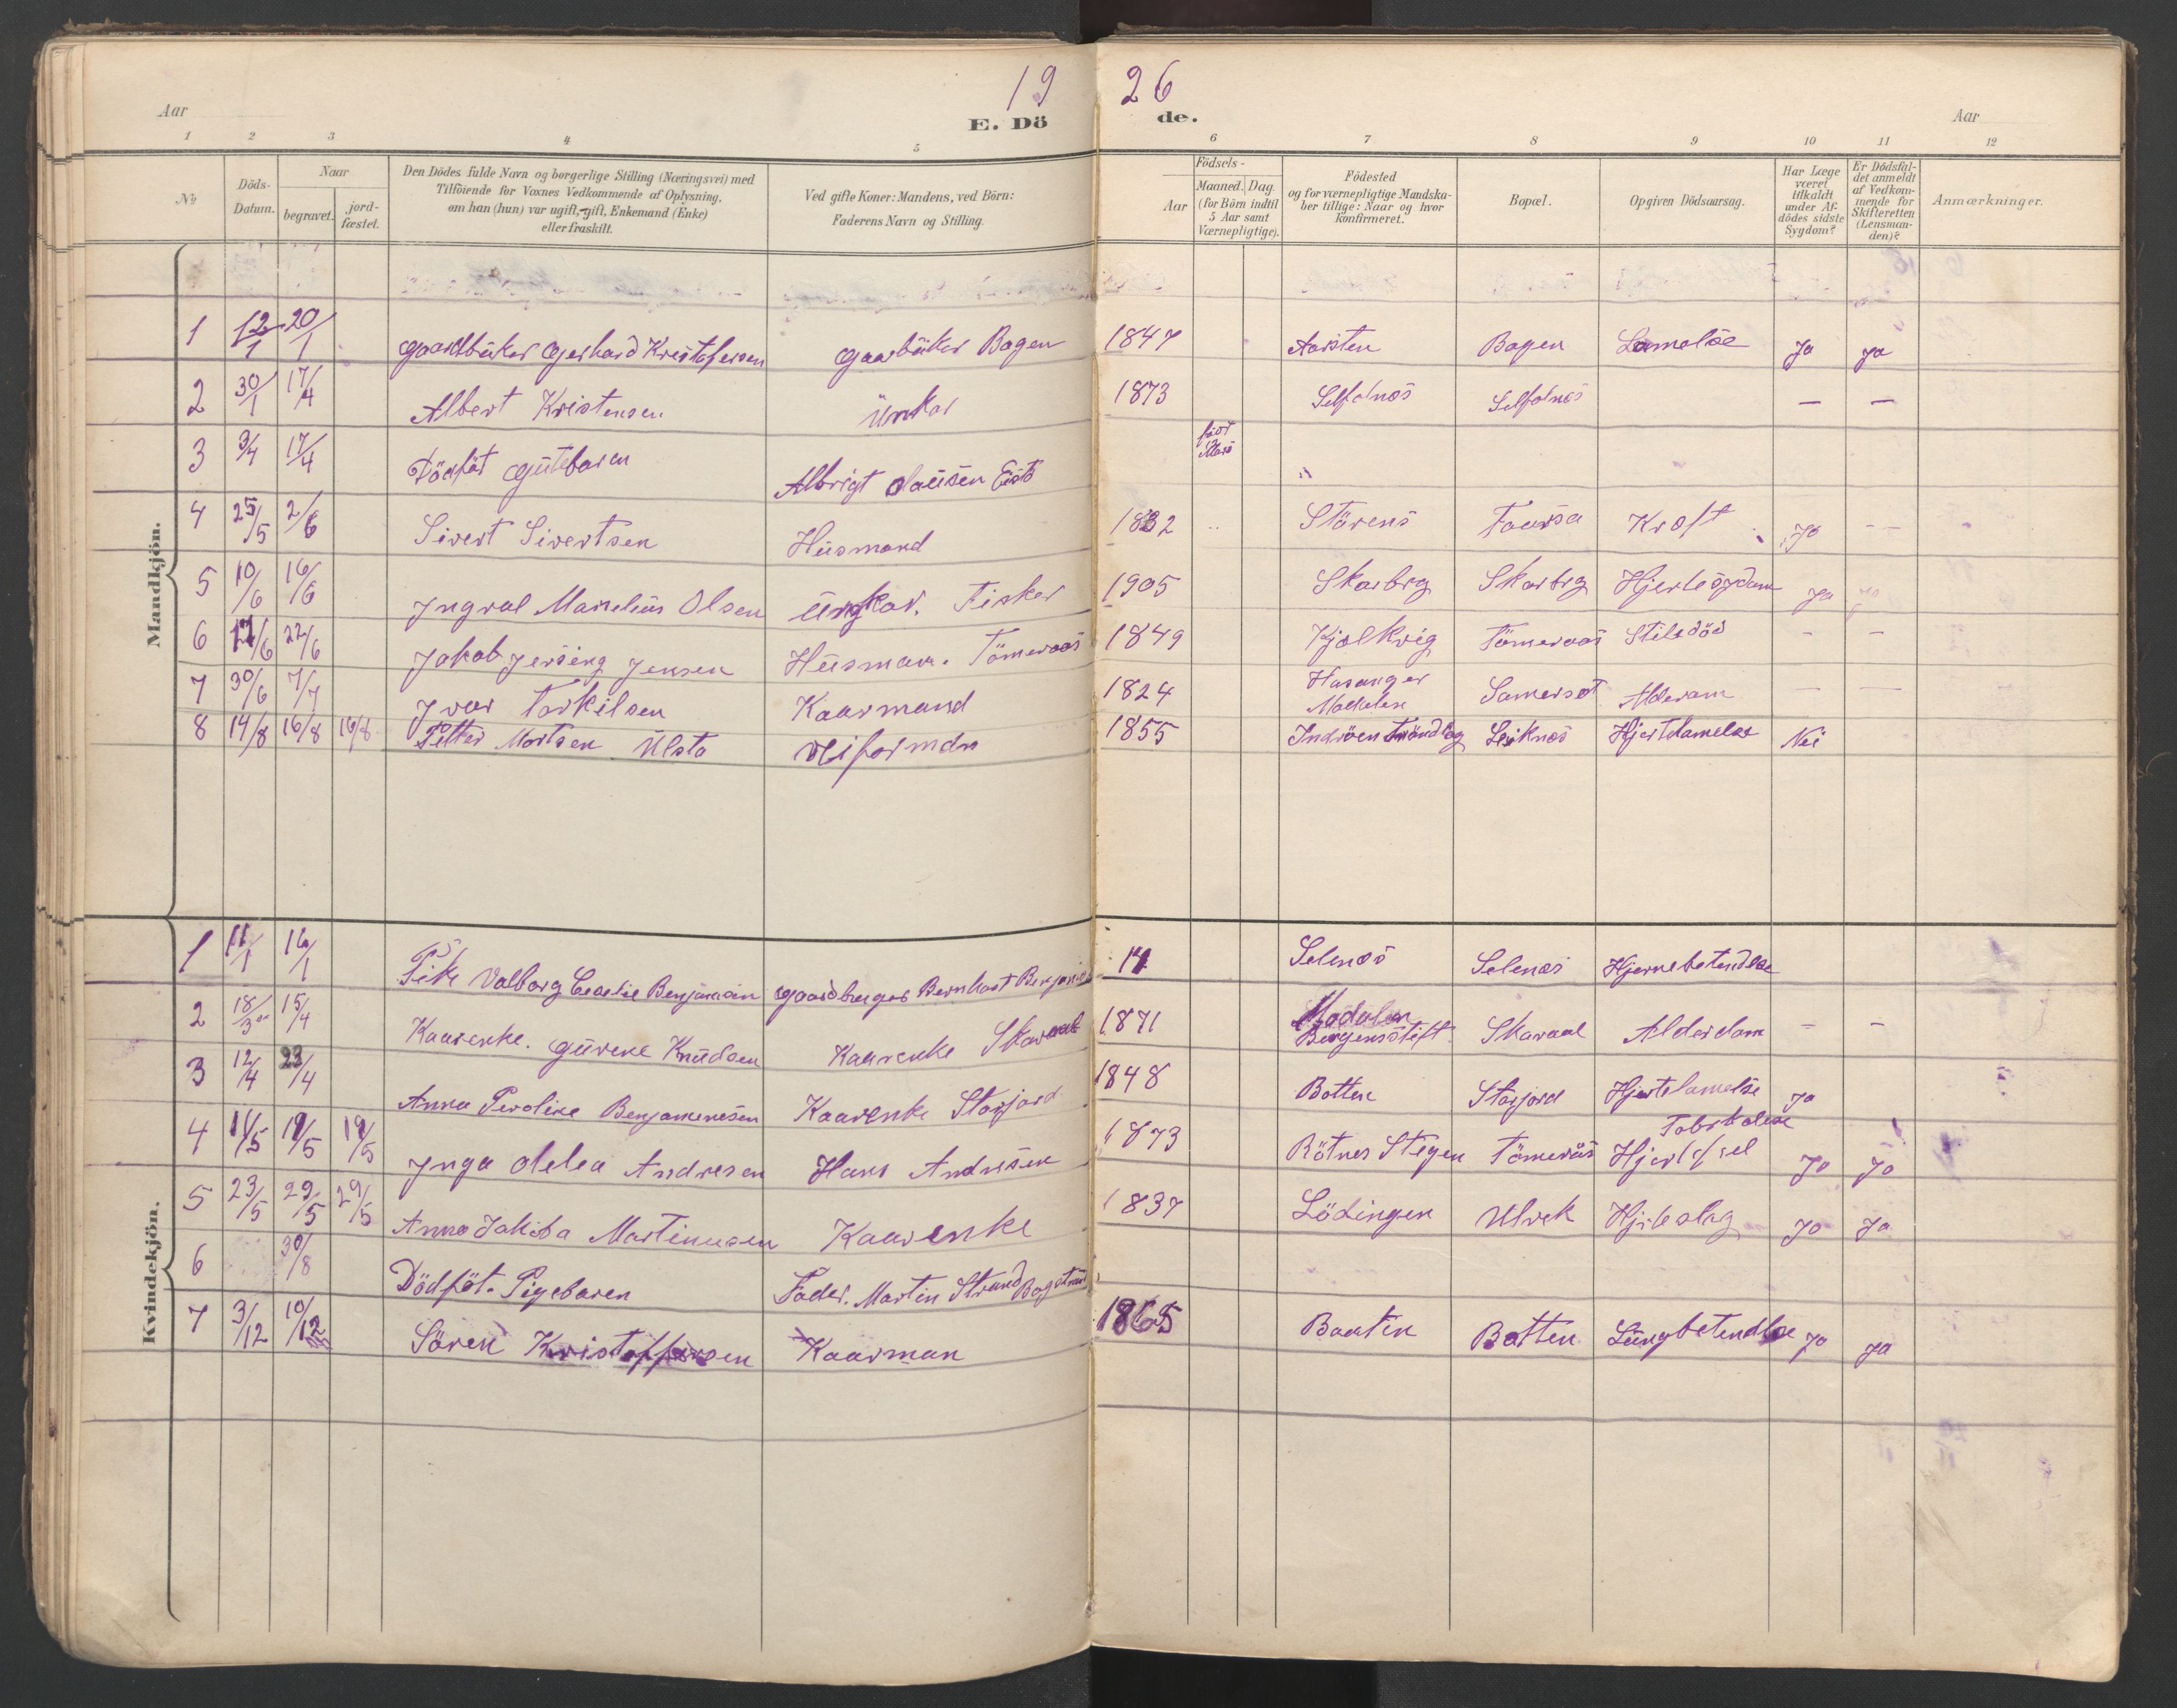 19 26
Aar E. Dö de. Aar
1 2 3 4 5 6 7 8 9 10 11 12
No
Döds-Datum.
Naar
begravet.
jord-fæstet.
Den Dödes fulde Navn og borgerlige Stilling (Næringsvei) med
Tilföiende for Voxnes Vedkommende af Oplysning,
om han (hun) var ugift, gift, Enkemand (Enke)
eller fraskilt.
Ved gifte Koner: Mandens, ved Börn:
Faderens Navn og Stilling.
Födsels-
Aar
Maaned. Dag.
(for Börn indtil
5 Aar samt
Værnepligtige).
Födested
og for værnepligtige Mandska-
ber tillige: Naar og hvor
konfirmeret.
Bopæl.
Opgiven Dödsaarsag.
Har Læge
været
tilkaldt
under Af-
dödes sidste
Sygdom?
Er Dödsfal-
det anmeldt
af Vedkom-
mende for
Skifteretten
(Lensman-
den)?
Anmærkninger.
Mandkjön.
1 12/1 20/1 Gaardbüker Gerhard Kristofersen Gaarbüker Bogen 1847 Aarsten Bogen Lamelse Ja Ja
2 30/1 17/4 Albert Kristensen Ünkar 1873 Selfolnes Selfolnes — —
3 3/4 17/4 Dödföt Gütebaren Albrigt Olaüsen föt Mars "
4 25/5 2/6 Sivert Sivertsen Hüsmand 1832 Störens Taarsa Kroft Ja - -
5 10/6 16/6 Ingval Manelius Olsen Üngkar. Fisker 1905 Skarbrg Skarbrg Hjertesydam Ja Ja
6 17/6 22/6 Jakob Jersing Jensen Hüsman. Tömeraas 1849 Kjolkvig Tömeraas - -
7 30/6 7/7 Ivar Torkilsen Kaarmand 1824 Hasanger Modalen Somerset Alderam — —
8 14/8 16/8 16/8 Petter Mortsen Ülsta 1855 Indröen Tröndlag Leiknes Hjertelamelse Nei
Kvindekjön.
1 11/1 16/1 Pike Valborg Benjamin Gaardbruger Bernhart 14 Selenos Selenos Hjernebetendlse
2 18/3 15/4 Kaarenke. Gürene Knüdsen Kaarenke Skaraal 1871 Modalen Bergensstift Skaraal Alderdam - -
3 12/4 23/4 Anna Peroline Benjamensen Kaarenke Storjord 1848 Botten Storjord Hjertelamelse Ja
4 11/5 19/5 19/5 Inga Olelea Andresen Hans Andresen 1873 Rötnes Stegen Tömerås Ja Ja
5 23/5 29/5 29/5 Anna Jakoba Martinusen Kaarenke 1837 Lödingen Ulvek Hjteslag Ja Ja
6 30/8 Dödföt. Pigebaren Fader. Martin Strand
7 3/12 10/12 Sören Kristoffersen Kaarman 1865 Baaten Botten Lüngbetendlse Ja Ja